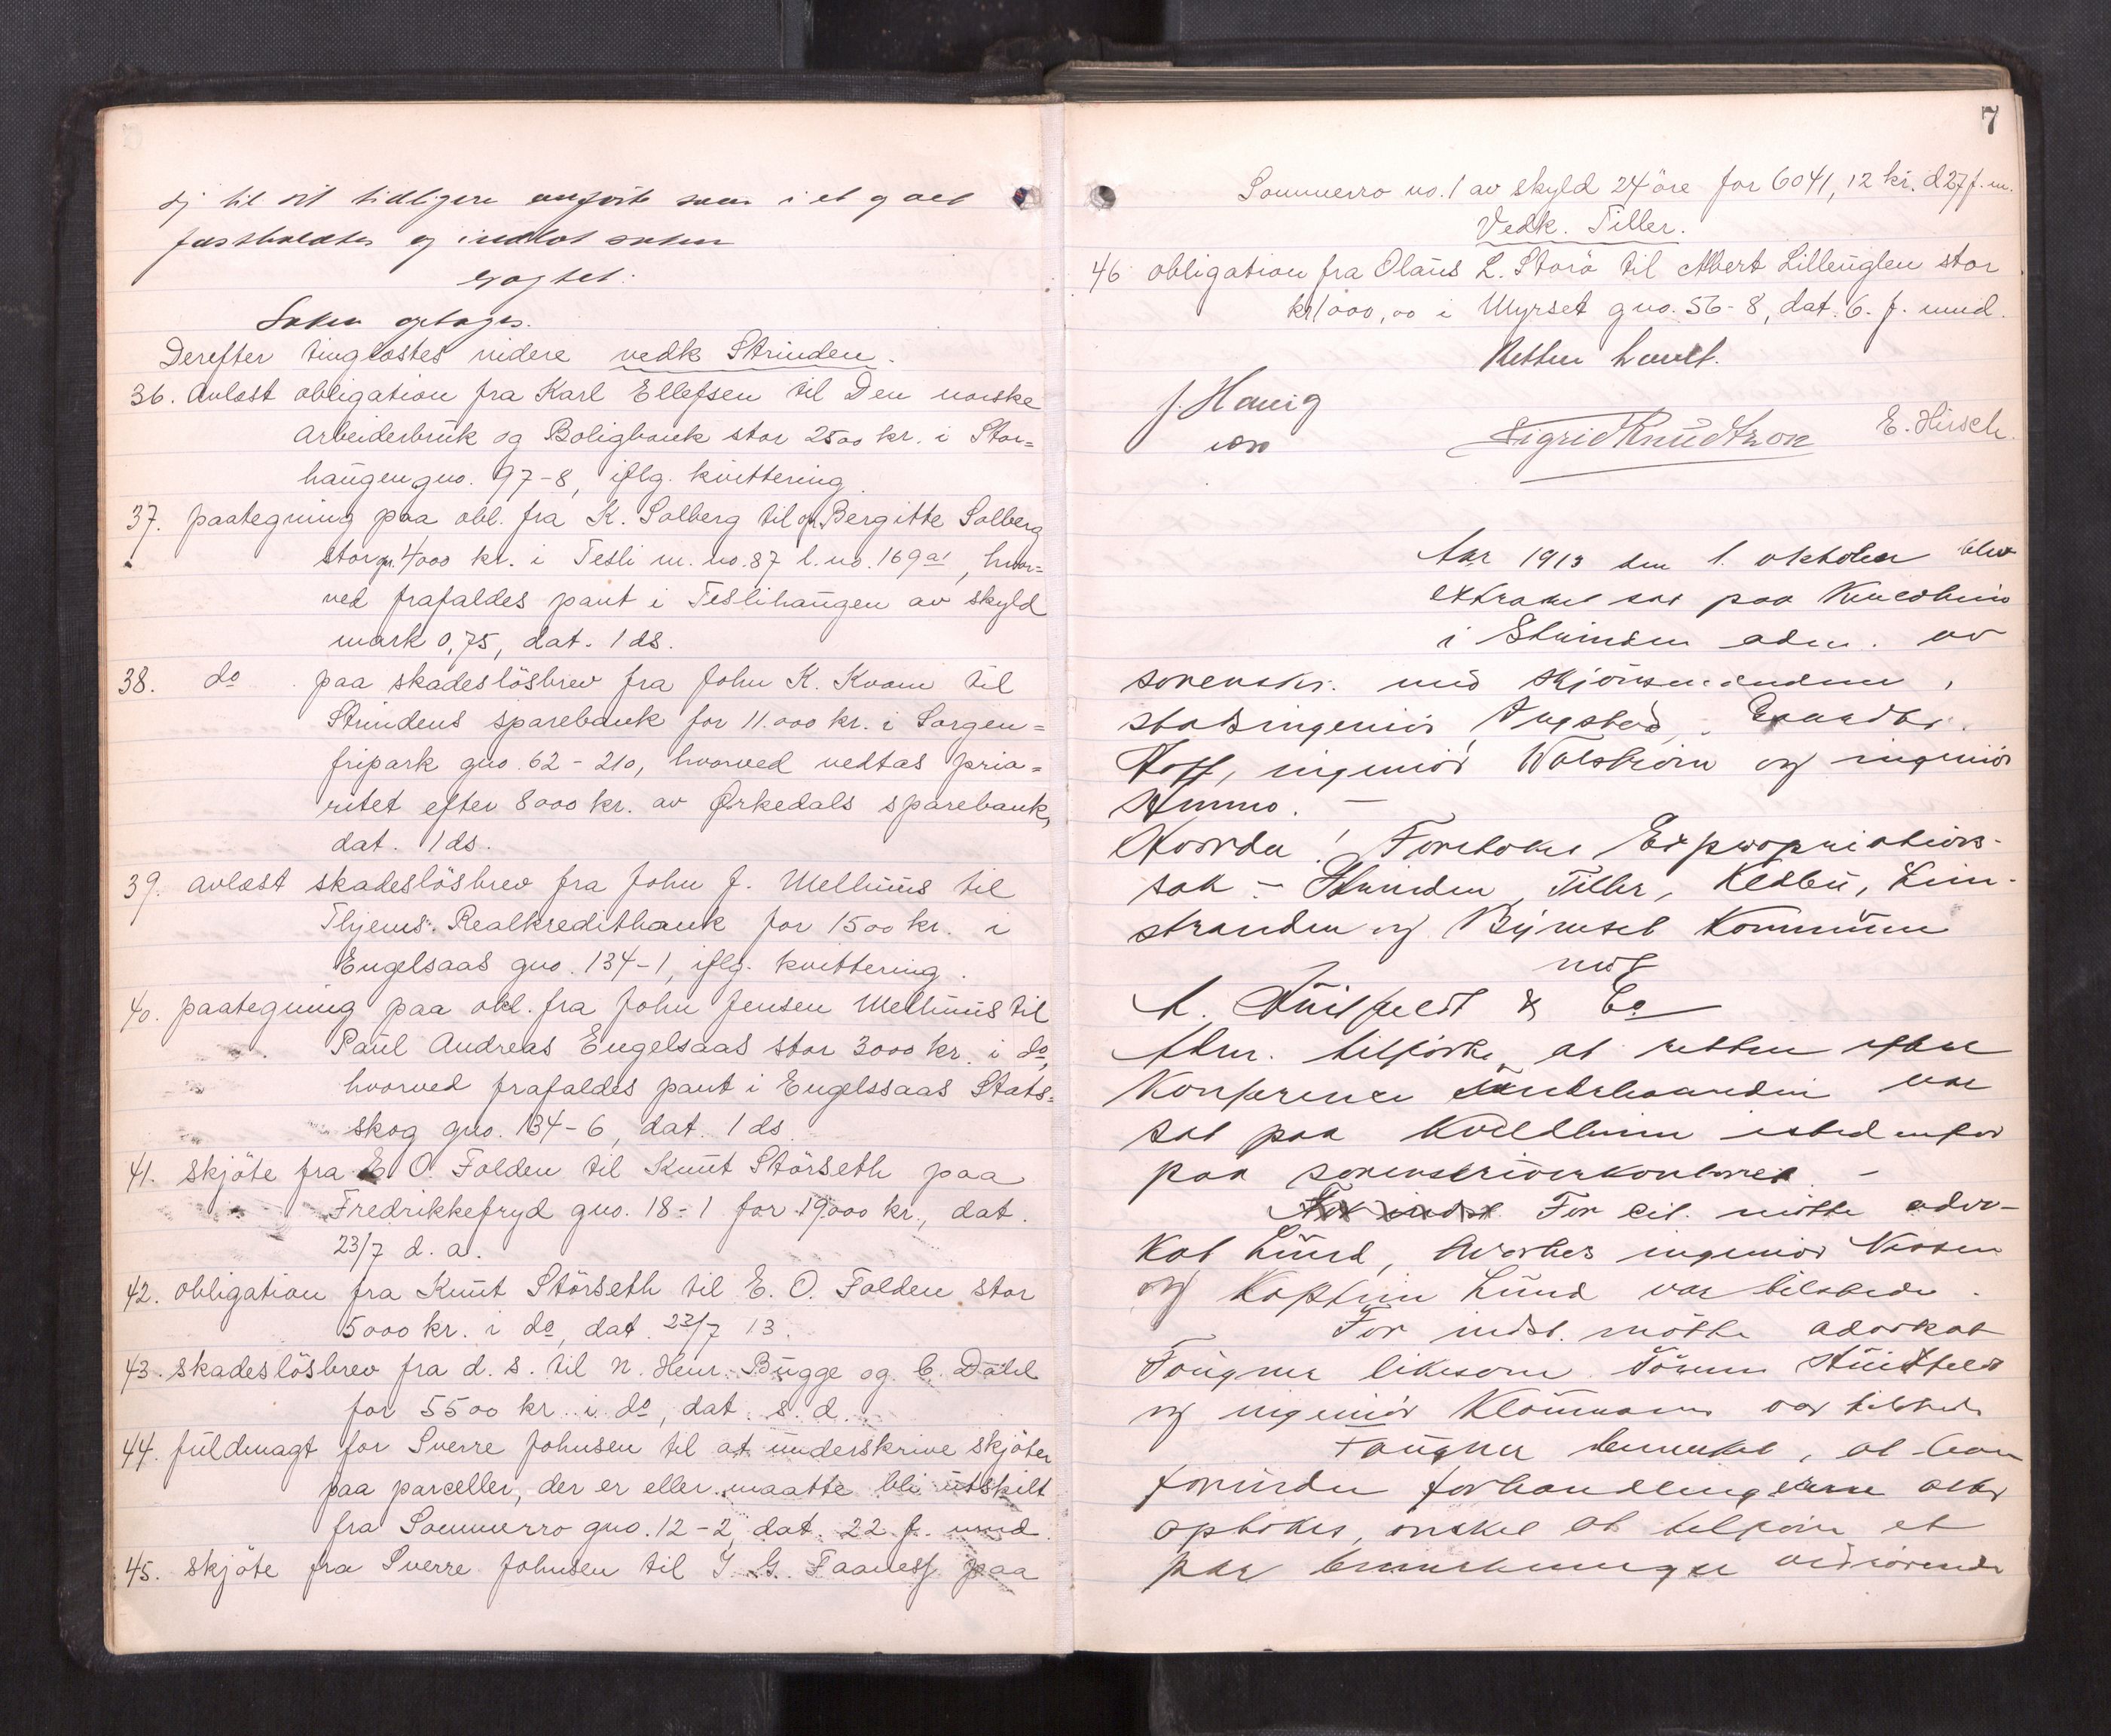 sig til sit tidligere anførte som i et og alt
fastholdtes og indlot saken
Saken optages.
Derefter tinglæstes videre vedk Strinden.
36. Avlæst obligation fra Karl Ellefsen til Den norske
Arbeiderbruk og Boligbank stor 2500 kr. i Stor=
haugen gno. 97-8, iflg. kvittering.
37. paategning paa obl. fra K. Solberg til fr. Bergitte Solberg
stor gr. 4000 kr. i Tesli m. no. 87 l. no. 169a1, hvor=
ved frafaldes pant i Teslihaugen av skyld
mark 0,75, dat. 1 ds.
38. do paa skadeslösbrev fra John K. Kvam til
Strindens sparebank for 11.000 kr. i Sorgen=
fripark gno. 62-210, hvorved vedtas prio=
ritet efter 8000 kr. av Ørkedals sparebank,
dat. 1 ds.
39. avlæst skadeslösbrev fra John J. Melhuus til
Thjems. Realkreditbank for 1500 kr. i
Engelsaas gno. 134-1, iflg. kvittering.
40. paategning paa obl. fra John Jensen Melhuus til
Paul Andreas Engelsaas stor 3000 kr. i do,
hvorved frafaldes pant i Engelssaas Stats=
skog gno. 134-6, dat. 1 ds.
41. skjöte fra E. O. Folden til Knut Störseth paa
Fredrikkefryd gno. 18-1 for 19000 kr., dat.
23/7 d. a.
42. obligation fra Knut Störseth til E. O. Folden stor
5000 kr. i do, dat. 23/7 13.
43. skadeslösbrev fra d. s. til N. Henr. Bugge og C. Dahl
for 5500 kr. i do, dat. s. d.
44. fuldmagt for Sverre Johnsen til at underskrive skjöter
paa parceller, der er eller maatte bli utskilt
fra Sommerro gno. 12-2, dat. 22 f. mnd.
45. skjöte fra Sverre Johnsen til I. G. Faanes paa
7
Sommerro no. 1 av skyld 24 öre for 6041,12 kr. d 27 f. m.
Vedk. Tiller.
46 obligation fra Olaus L. Storö til Albert Lilleuglen stor
kr 1000,00 i Myrset gno. 56-8, dat. 6. f. mnd.
Retten hævet.
Sigrid Knudtzon E. Hirsch.
Aar 1913 den 1. oktober blev
extraret sat paa
i Strinden adm. av
sorenskr. med skjönsmændene,
stadsingeniör
Hoff, ingeniör Wolstrøm og ingeniör
Hvorda! Foretokes Expropriations-
sak - Strinden, Tiller, Klæbu, Lein-
stranden og Byneset Kommune
mot
A. Huitfeldt & Co
Adm. tilförte, at retten efter
Konference var
sat paa istedenfor
paa sorenskriverkontoret. -
For cit. mötte advo-
kat Lund, ingeniör
og Kaptein Lund var tilstede.
For indst. mötte advokat
Tougner likesom Huitfeldt
og ingeniör var tilstede
Tougner bemerket, at han
forinden forhandlingerne
optokes, önsket at tilföie et
par bemerkninger vedrörende